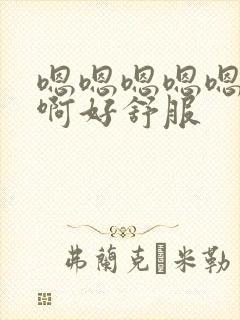 嗯嗯嗯嗯嗯
啊好舒服
弗蘭克 米勒